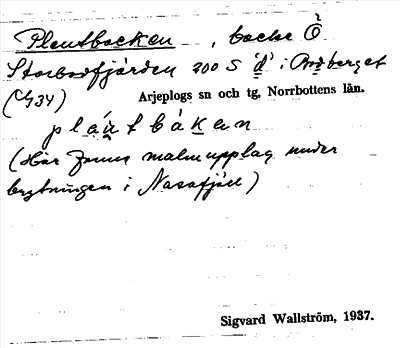 Plentbacken, backe Ö
Storbodfjärden 200 S "d" i Bodberget
(Y34) Arjeplogs sn och tg. Norrbottens län.
pláutbàkan
(Här fanns malmupplag under
brytningen i Nasafjäll)
Sigvard Wallström, 1937.